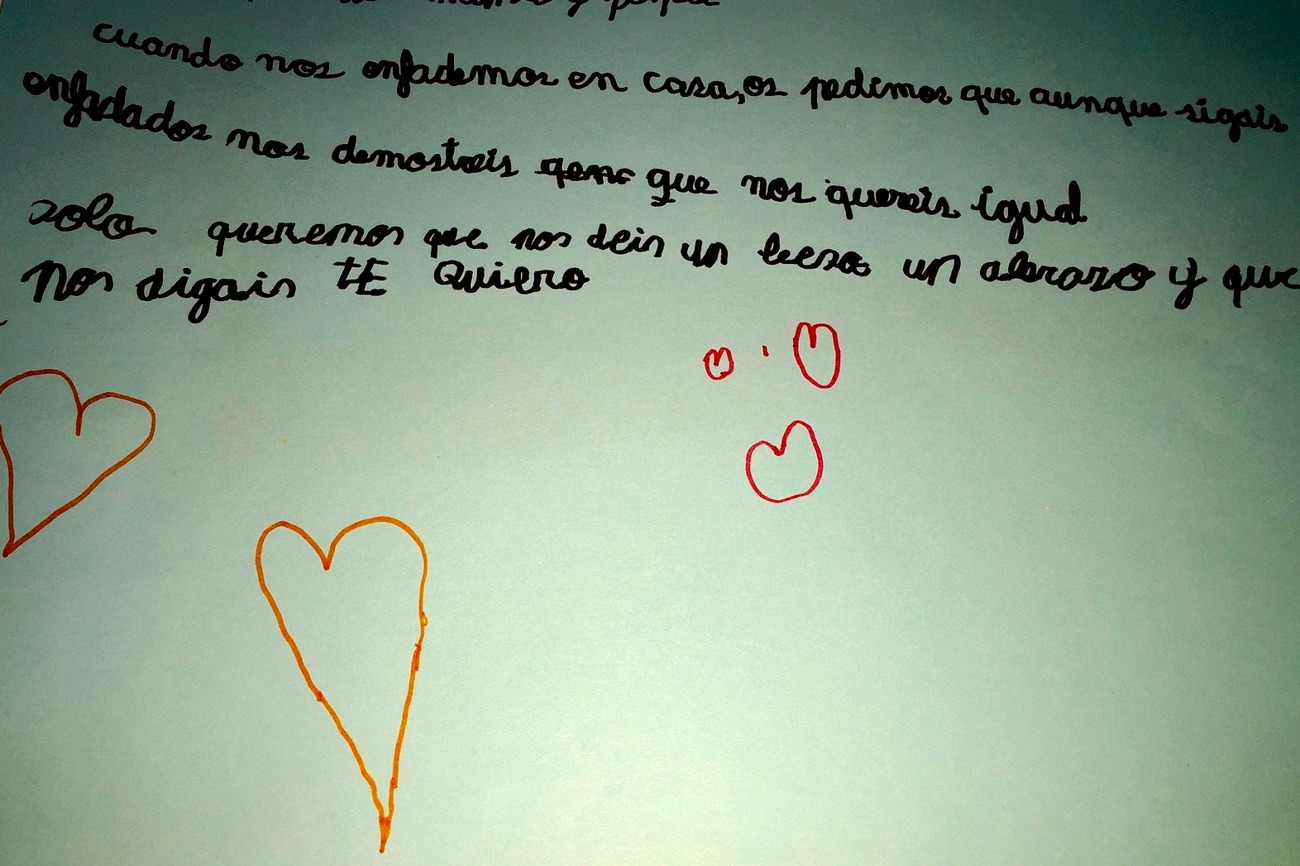 mama y papa
cuando nos enfademos en casa, os pedimos que aunque sigais
enfadados nos demostreis que nos quereis igual
solo queremos que nos deis un beso un abrazo y que
nos digais TE Quiero